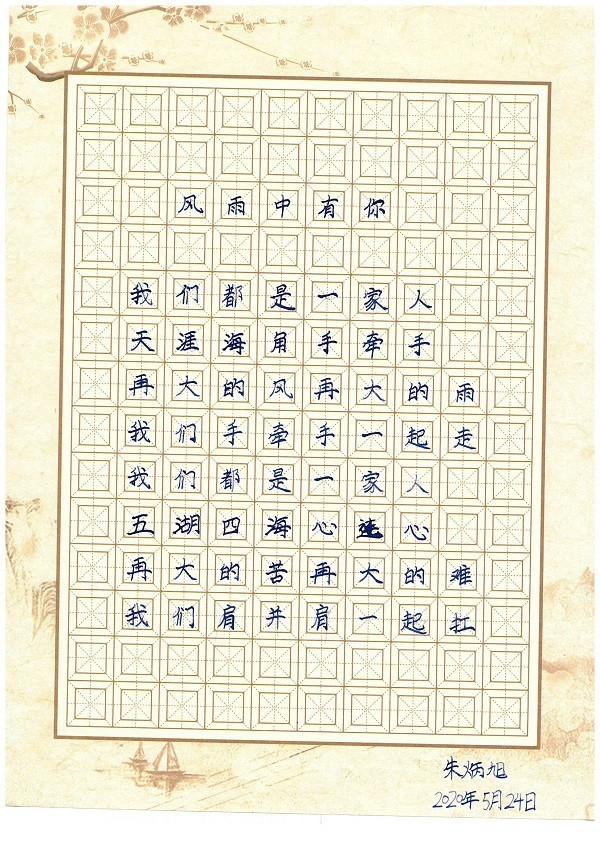 风雨中有你
我们都是一家人
天涯海角手牵手
再大的风再大的雨
我们手牵手一起走
我们都是一家人
五湖四海心连心
再大的苦再大的难
我们肩并肩一起扛
朱炳旭
2020年5月24日